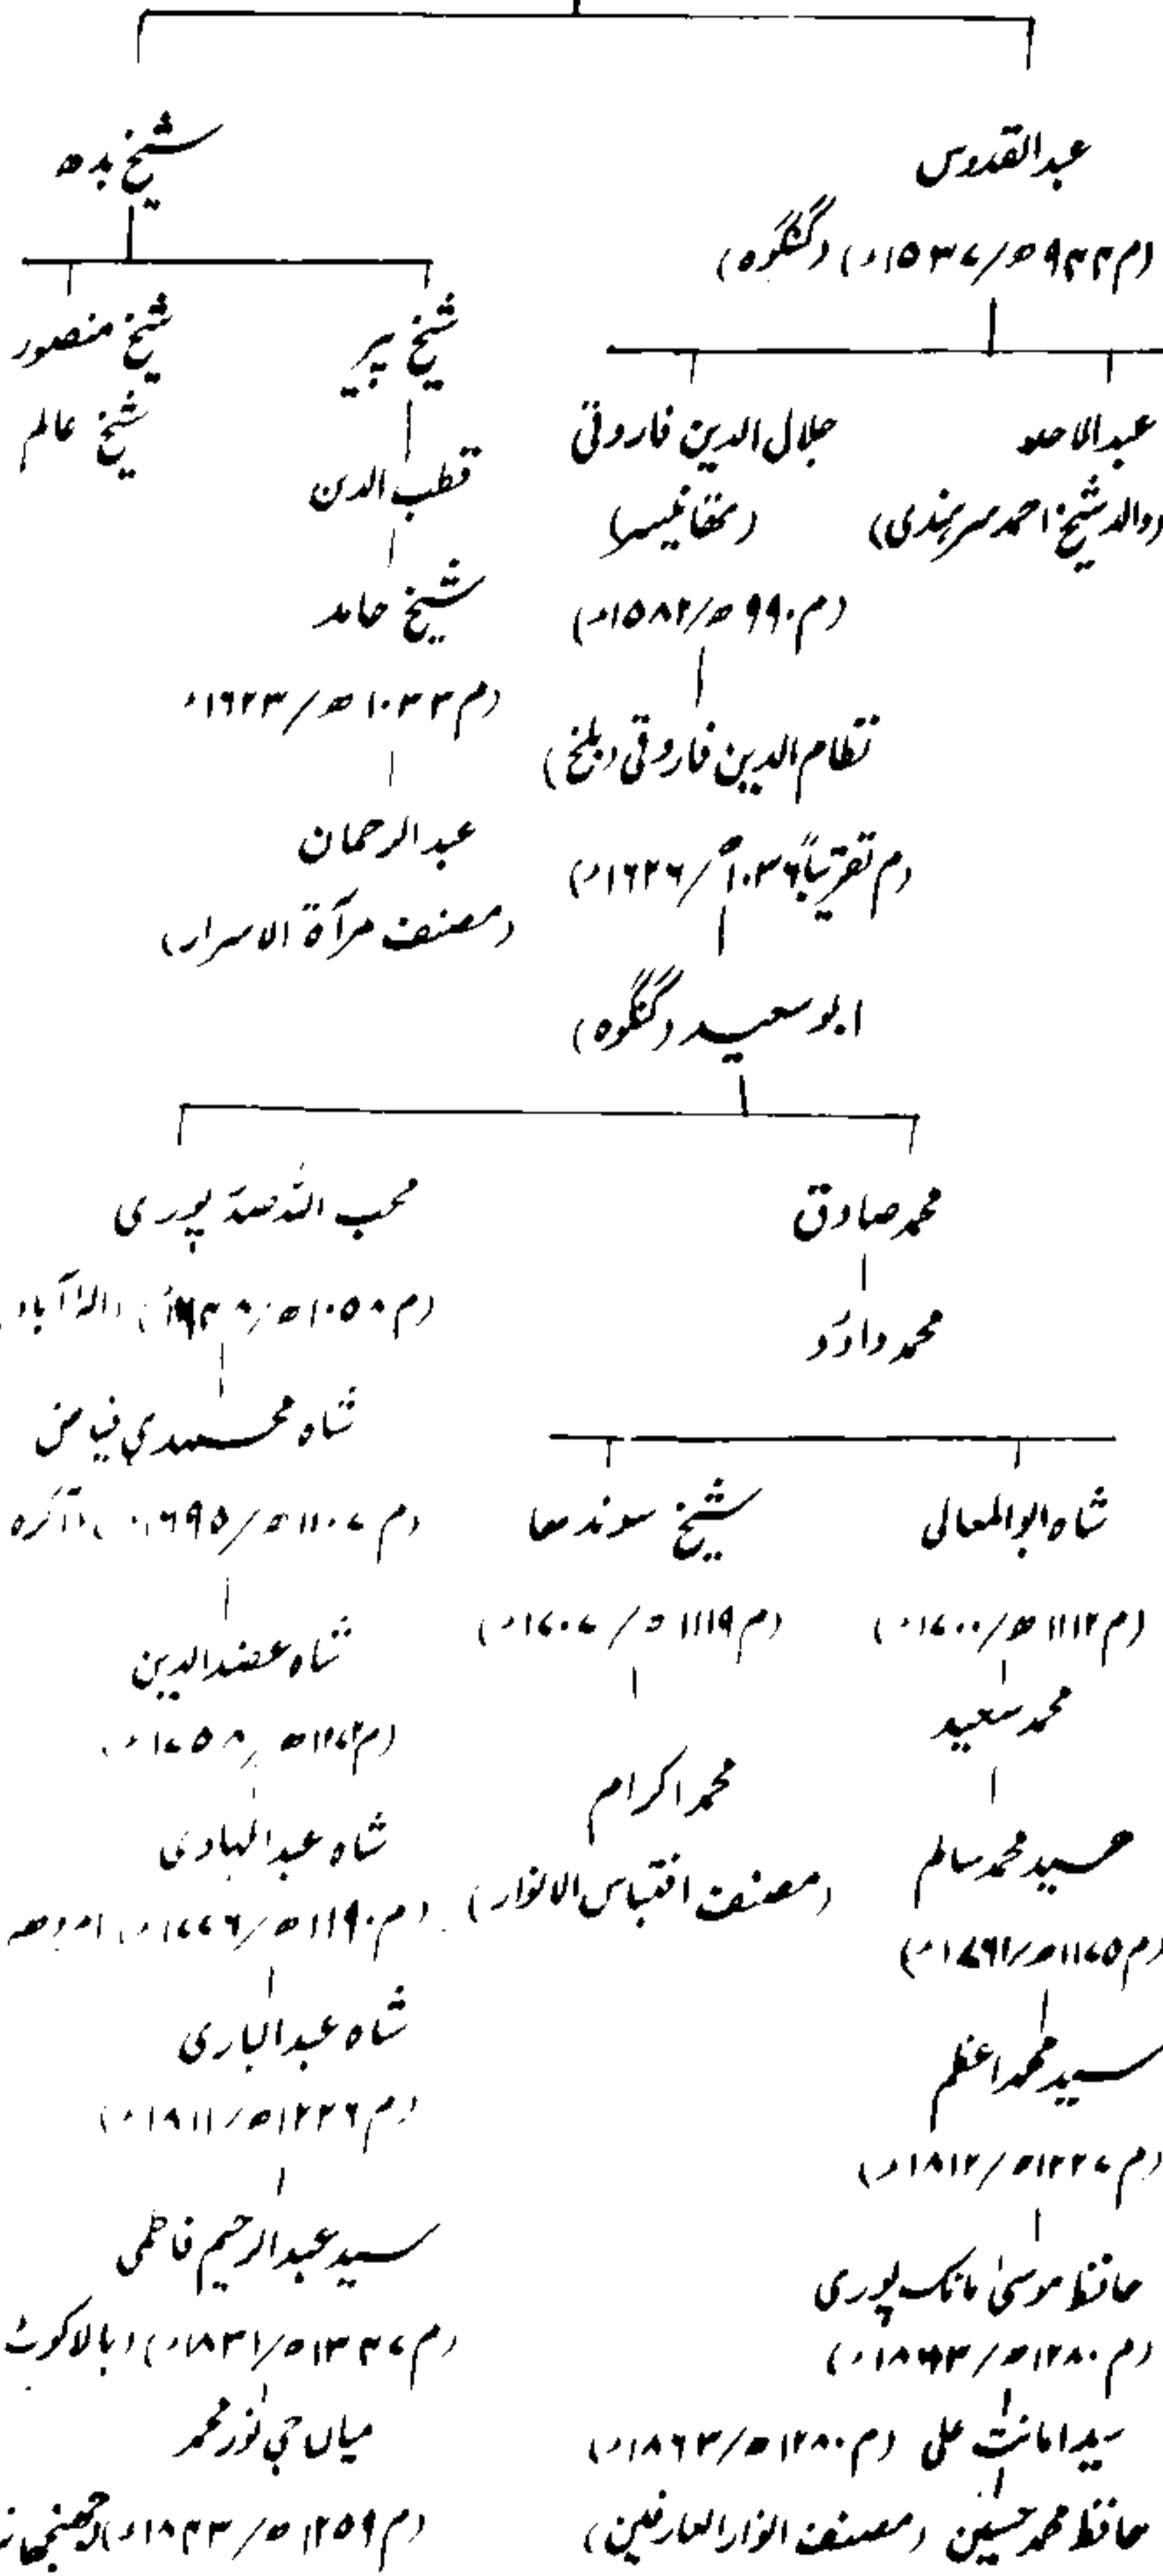 عبدالقدوس
(م ۹۴۴ھ/۱۵۳۷ء) (گنگوہ)
عبدالاحد
(والد شیخ احمد سرہندی)
جلال الدین فاروقی
(تھانیسر)
(م ۹۹۰ھ/۱۵۸۲ء)
نظام الدین فاروقی (بلخ)
(م تقریباً ۱۰۳۶ھ/۱۶۲۶ء)
ابوسعید (گنگوہ)
محمد صادق
محمد داؤد
شاہ ابوالمعالی
(م ۱۱۱۲ھ/۱۷۰۰ء)
محمد سعید
سید محمد سالم
(م ۱۱۷۵ھ/۱۷۶۱ء)
سید محمد اعظم
(م ۱۲۲۷ھ/۱۸۱۲ء)
حافظ موسیٰ مانک پوری
(م ۱۲۸۰ھ/۱۸۶۳ء)
سید امانت علی (م ۱۲۸۰ھ/۱۸۶۳ء)
حافظ محمد حسین (مصنف انوار العارفین)
شیخ سوندھا
(م ۱۱۱۹ھ/۱۷۰۷ء)
محمد اکرام
(مصنف اقتباس الانوار)
محب اللہ صدر پوری
(م ۱۰۵۸ھ/۱۶۴۸ء) (الہ آباد)
شاہ محمدی فیاض
(م ۱۱۰۷ھ/۱۶۹۵ء) (آگرہ
شاہ عضدالدین
(م ۱۱۷۲ھ/۱۷۵۸ء)
شاہ عبدالہادی
(م ۱۱۹۰ھ/۱۷۷۶ء) امروھہ
شاہ عبدالباری
(م ۱۲۲۶ھ/۱۸۱۱ء)
سید عبدالرحیم فاطمی
(م ۱۳۴۷ھ/۱۸۳۱ء) (بالاکوٹ
میاں جی نور محمد
(م ۱۲۵۹ھ/۱۸۴۳ء)
شیخ بدھ
شیخ پیر
قطب الدن
شیخ حامد
(م ۱۰۳۳ھ/۱۶۲۳ء
عبدالرحمان
(مصنف مرآۃ الاسرار)
شیخ منصور
شیخ عالم